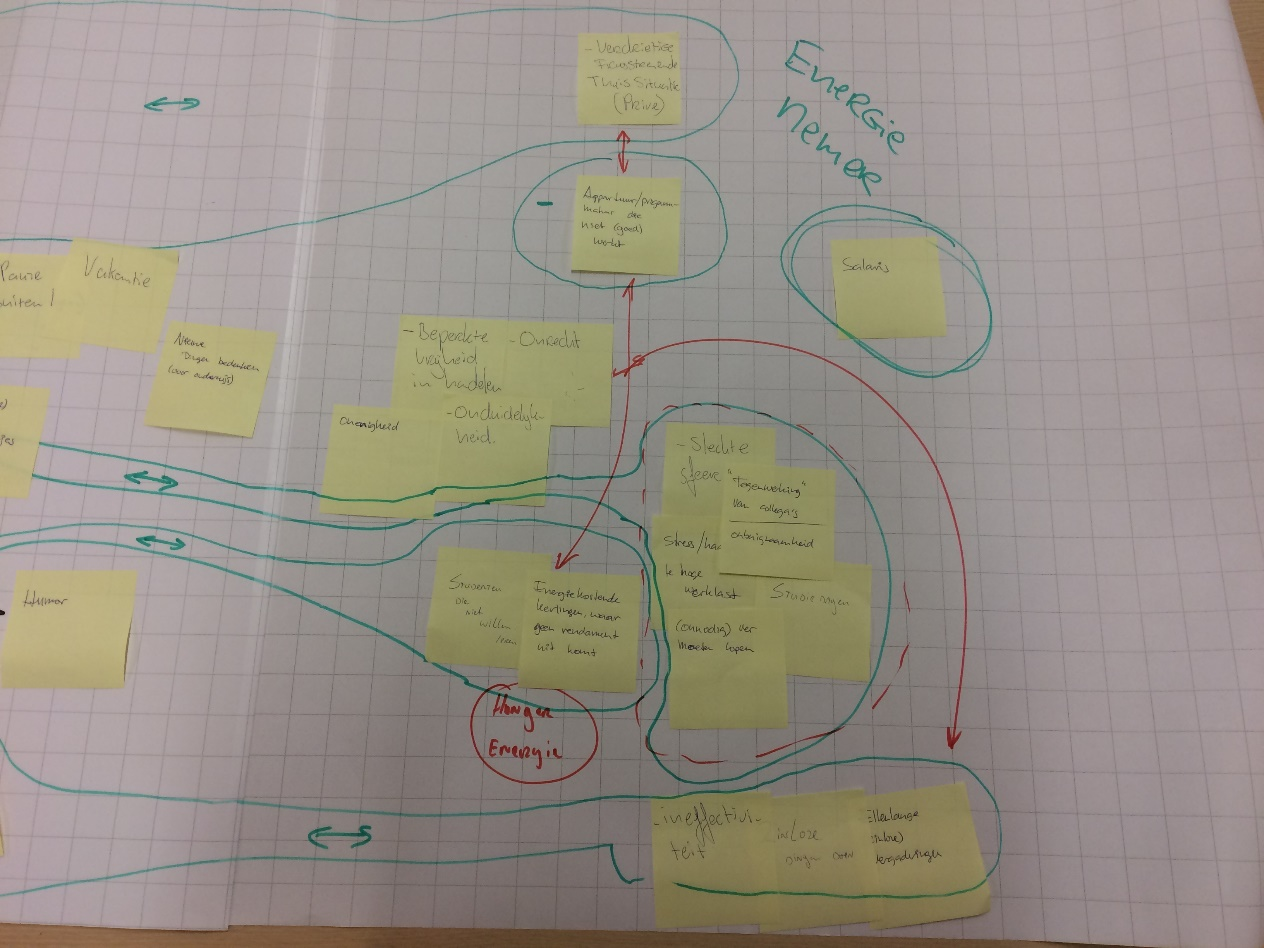 - Verdrietige
Thuis Situatie
(Prive)
Energie
nemer
Apparatuur/program-
matuur die
niet (goed)
werkt
-
Salaris
Pauze
buiten!
Vakantie
Nieuwe
Dingen bedenken
(over onderwijs)
- Beperkte
vrijheid
in handelen
- Onrecht
Onenigheid
- Onduidelijk-
heid.
- Slechte
sfeer
"Tegenwerking"
van collega's
Stress/
te hoge
werklast
(onnodig) ver
moeten lopen
Studenten
die
niet
willen
leren
Energiekostende
leerlingen, waar
geen rendement
uit komt
Humor
Honger
Energie
- ineffectivi-
teit
Ellenlange
vergaderingen